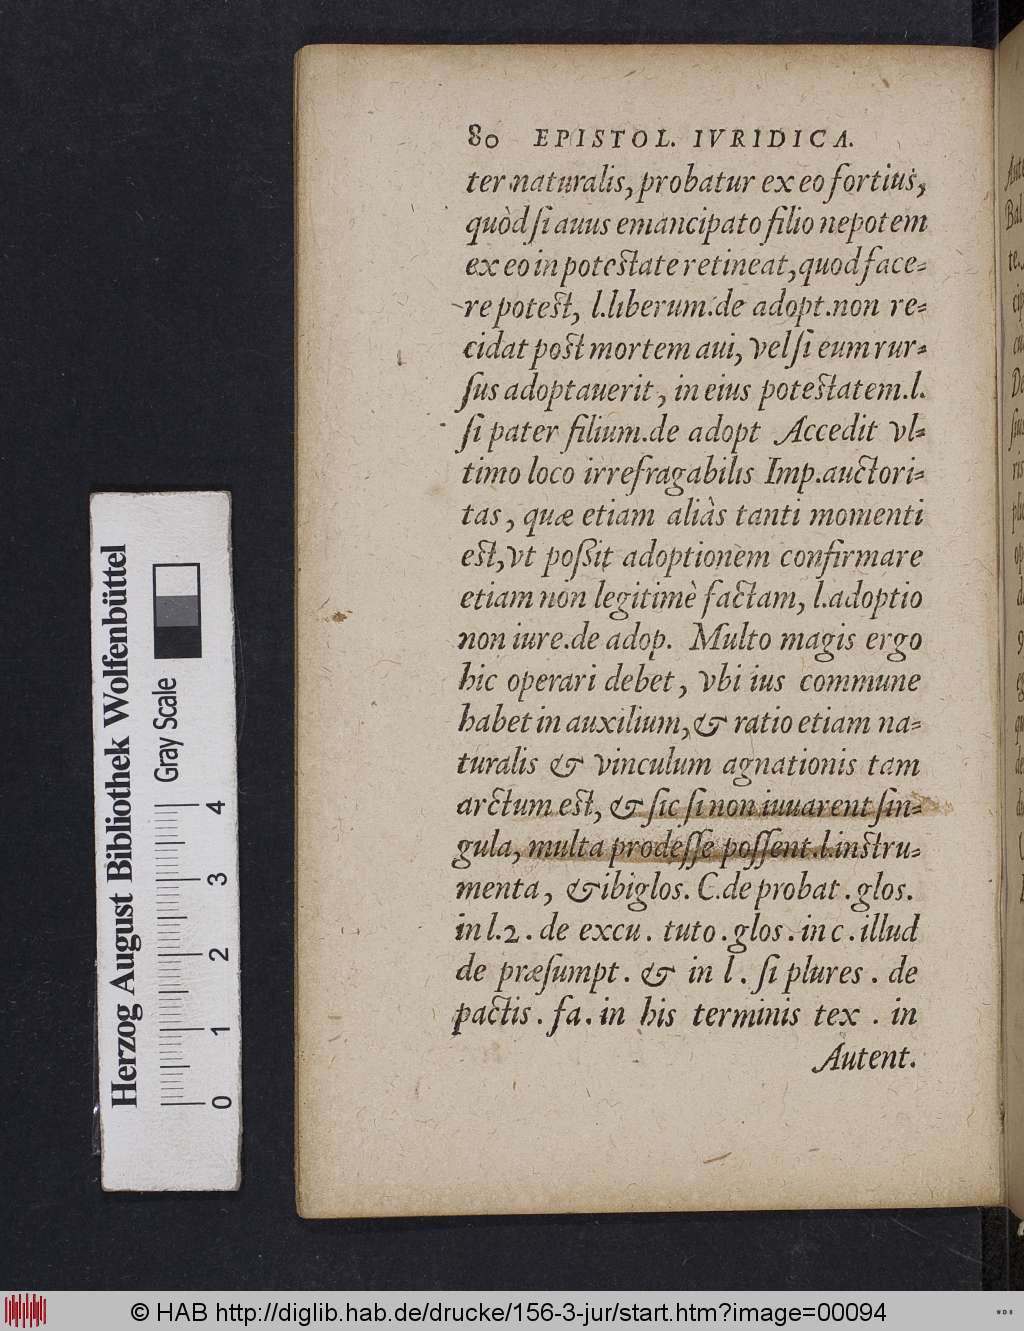 80 EPISTOL. IVRIDICA.
ter naturalis, probatur ex eo fortius,
quòd si auus emancipato filio nepotem
ex eo in potestate retineat, quod face-
re potest, l. liberum. de adopt. non re-
cidat post mortem aui, vel si eum rur-
sus adoptauerit, in eius potestatem. l.
si pater filium. de adopt Accedit vl-
timo loco irrefragabilis Imp. auctori-
tas, quæ etiam aliàs tanti momenti
est, vt possit adoptionem confirmare
etiam non legitimè factam, l. adoptio
non iure. de adop. Multo magis ergo
hic operari debet, vbi ius commune
habet in auxilium, & ratio etiam na-
turalis & vinculum agnationis tam
arctum est, & sic si non iuuarent sin-
gula, multa prodesse possent. l. instru-
menta, & ibi glos. C. de probat. glos.
in l. 2. de excu. tuto. glos. in c. illud
de præsumpt. & in l. si plures. de
pactis. fa. in his terminis tex. in
Autent.
Herzog August Bibliothek Wolfenbüttel
Gray Scale
0 1 2 3 4
© HAB http://diglib.hab.de/drucke/156-3-jur/start.htm?image=00094